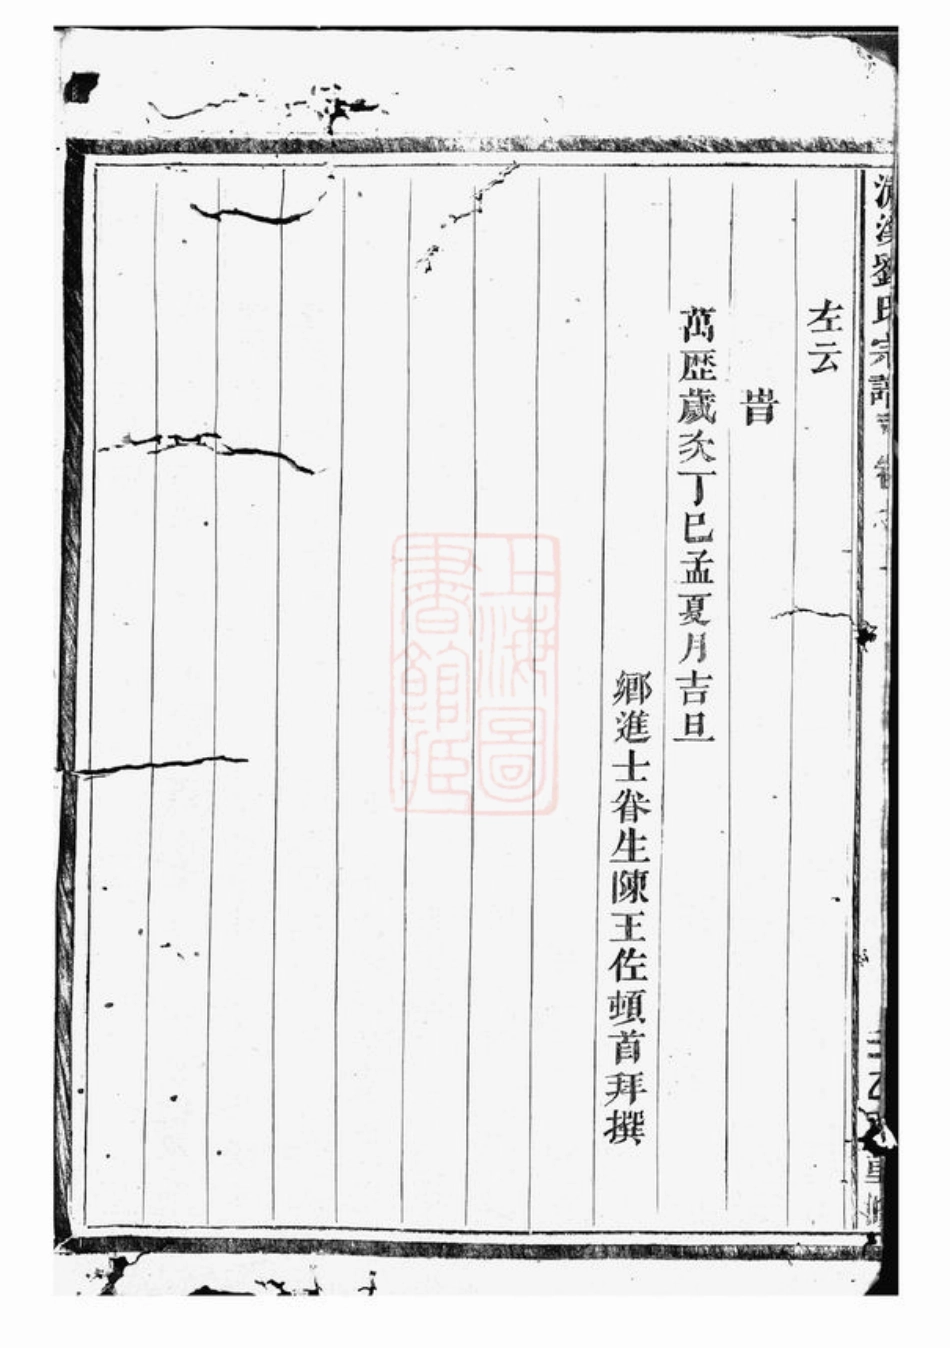 劉氏宗譜
重修
左云
旹
萬歷歲次丁巳孟夏月吉旦
鄉進士眷生陳王佐頓首拜撰
上海圖
書館藏